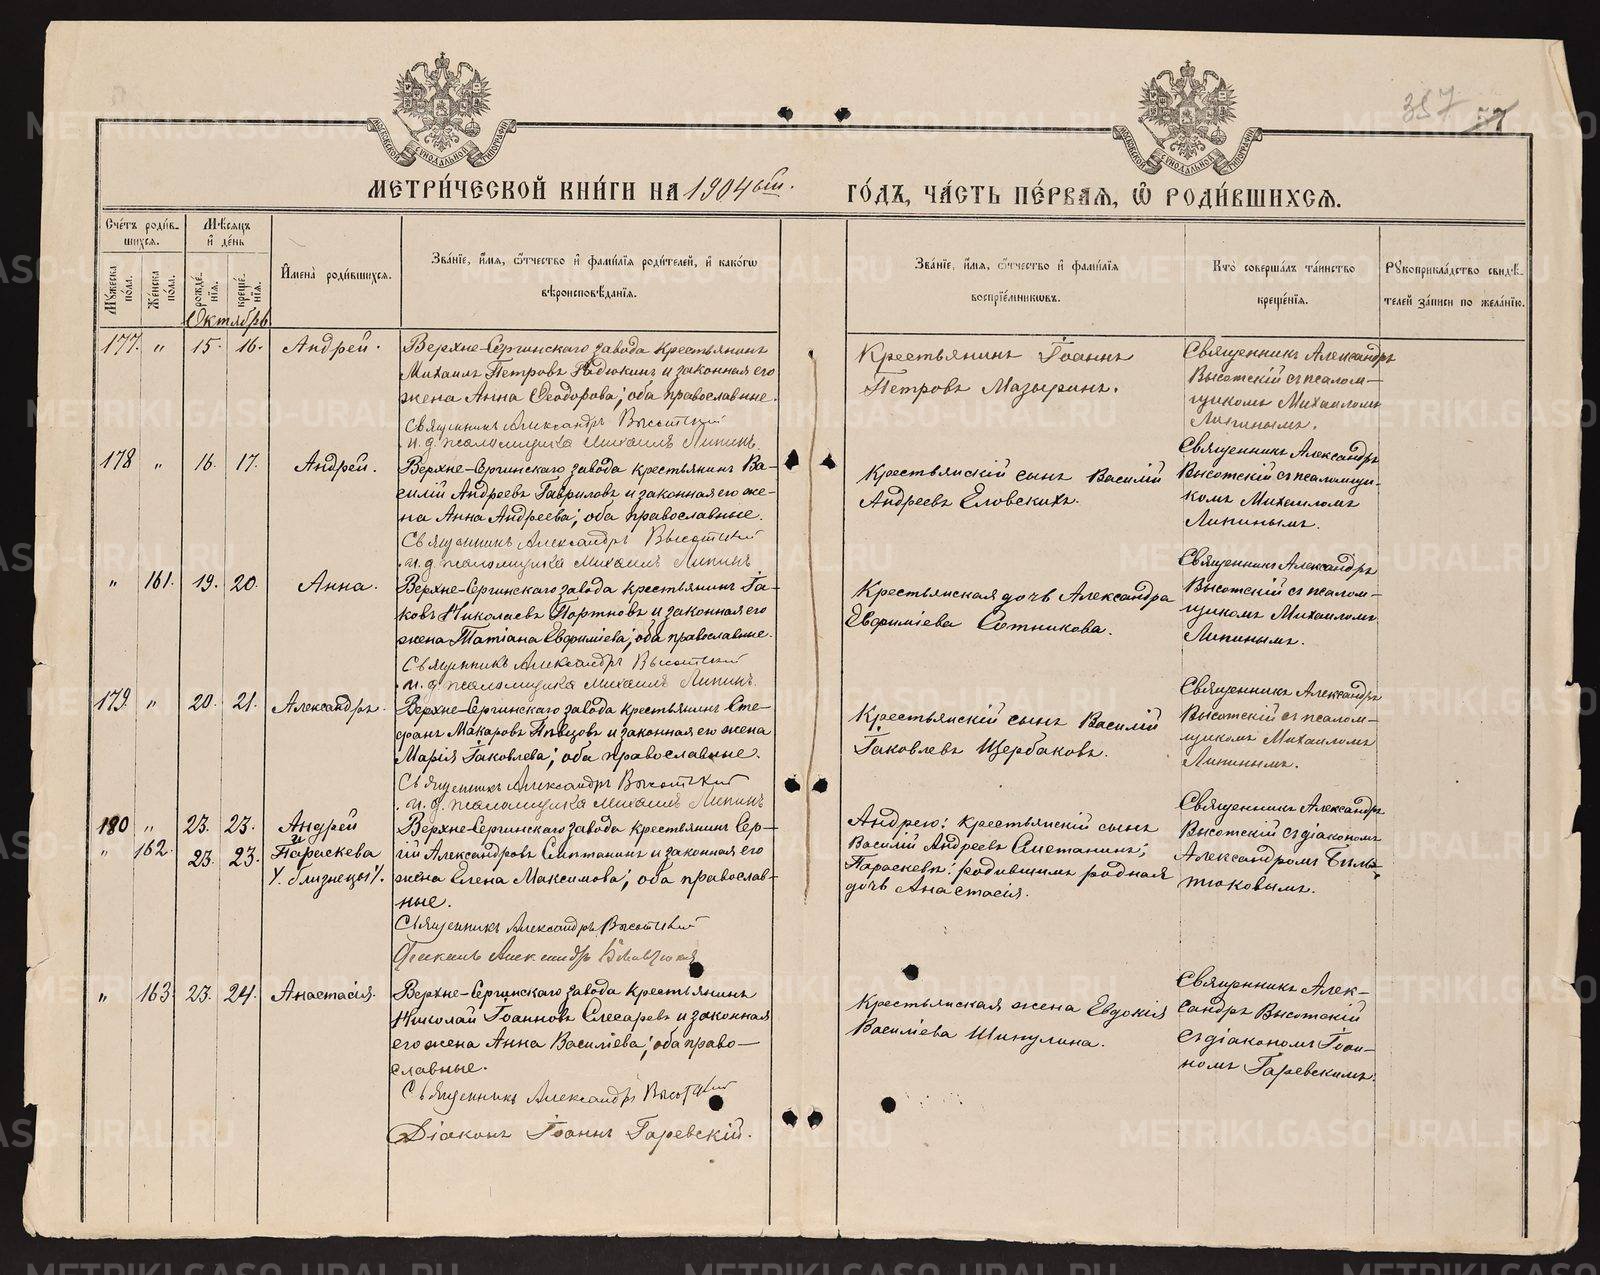 357 77
МОСКОВСКОЙ СУНОДАЛЬНОЙ ТИПОГРАФІИ
МОСКОВСКОЙ СУНОДАЛЬНОЙ ТИПОГРАФІИ
МЕТРИ́ЧЕСКОЙ КНИ́ГИ НА 1904 ый. ГО́ДЪ, ЧА́СТЬ ПЕ́РВАѦ, Ѡ҆ РОДИ́ВШИХСѦ.
Сче́тъ роди́в-
шихсѧ.
Мꙋ́жеска по́ла.
Же́нска по́ла.
Мѣ́сѧцъ и҆ де́нь
рожде́- нїѧ.
креще́- нїѧ.
И҆мена̀ роди́вшихсѧ.
Зва́нїе, и҆́мѧ, ѻ҆́тчество и҆ фами́лїѧ роди́телей, и҆ како́гѡ
вѣроисповѣ́данїѧ.
Зва́нїе, и҆́мѧ, ѻ҆́тчество и҆ фами́лїѧ
воспрїе́мникѡвъ.
Кто̀ соверша́лъ та́инство
креще́нїѧ.
Рꙋкоприкла́дство свидѣ́-
телей за́писи по жела́нїю.
Октябрь
177. " 15. 16. Андрей.
Верхне-Сергинскаго завода крестьянинъ
Михаилъ Петровъ Радюкинъ и законная его
жена Анна Ѳеодорова; оба православные.
Священникъ Александръ Высотскій
и. д. псаломщика Михаилъ Липинъ
Крестьянинъ Іоаннъ
Петровъ Мазыринъ.
Священникъ Александръ
Высотскій съ псалом-
щикомъ Михаиломъ
Липинымъ.
178 " 16. 17. Андрей.
Верхне-Сергинскаго завода крестьянинъ Ва-
силій Андреевъ Гавриловъ и законная его же-
на Анна Андреева; оба православные.
Священникъ Александръ Высотскій
и. д. псаломщика Михаилъ Липинъ
Крестьянскій сынъ Василій
Андреевъ Еловскихъ.
Священникъ Александръ
Высотскій съ псаломщи-
комъ Михаиломъ
Липинымъ.
" 161. 19. 20. Анна.
Верхне-Сергинскаго завода крестьянинъ Іа-
ковъ Николаевъ Портновъ и законная его
жена Татіана Евфиміева; оба православные.
Священникъ Александръ Высотскій
и. д. псаломщика Михаилъ Липинъ
Крестьянская дочь Александра
Евфиміева Сотникова.
Священникъ Александръ
Высотскій съ псалом-
щикомъ Михаиломъ
Липинымъ.
179. " 20. 21. Александръ.
Верхне-Сергинскаго завода крестьянинъ Сте-
фанъ Макаровъ Пѣвцовъ и законная его жена
Марія Іаковлева; оба православные.
Священникъ Александръ Высотскій
и. д. псаломщика Михаилъ Липинъ
Крестьянскій сынъ Василій
Іаковлевъ Щербаковъ.
Священникъ Александръ
Высотскій съ псалом-
щикомъ Михаиломъ
Липинымъ.
180 " 23. 23. Андрей
и
" 162. 23. 23. Параскева
/. близнецы /.
Верхне-Сергинскаго завода крестьянинъ Сер-
гій Александровъ Сметанинъ и законная его
жена Елена Максимова; оба православ-
ные.
Священникъ Александръ Высотскій
Діаконъ Александръ
Андрею: крестьянскій сынъ
Василій Андреевъ Сметанинъ;
Параскевѣ: родившимъ родная
дочь Анастасія.
Священникъ Александръ
Высотскій съ діакономъ
Александромъ Биль-
тюковымъ.
" 163. 23. 24. Анастасія.
Верхне-Сергинскаго завода крестьянинъ
Николай Іоанновъ Слесаревъ и законная
его жена Анна Василіева; оба право-
славные.
Священникъ Александръ Высотскій
Діаконъ Іоаннъ Гаревскій.
Крестьянская жена Евдокія
Василіева Шипулина.
Священникъ Алек-
сандръ Высотскій
съ діакономъ Іоан-
номъ Гаревскимъ.
METRIKI.GASO-URAL.RU